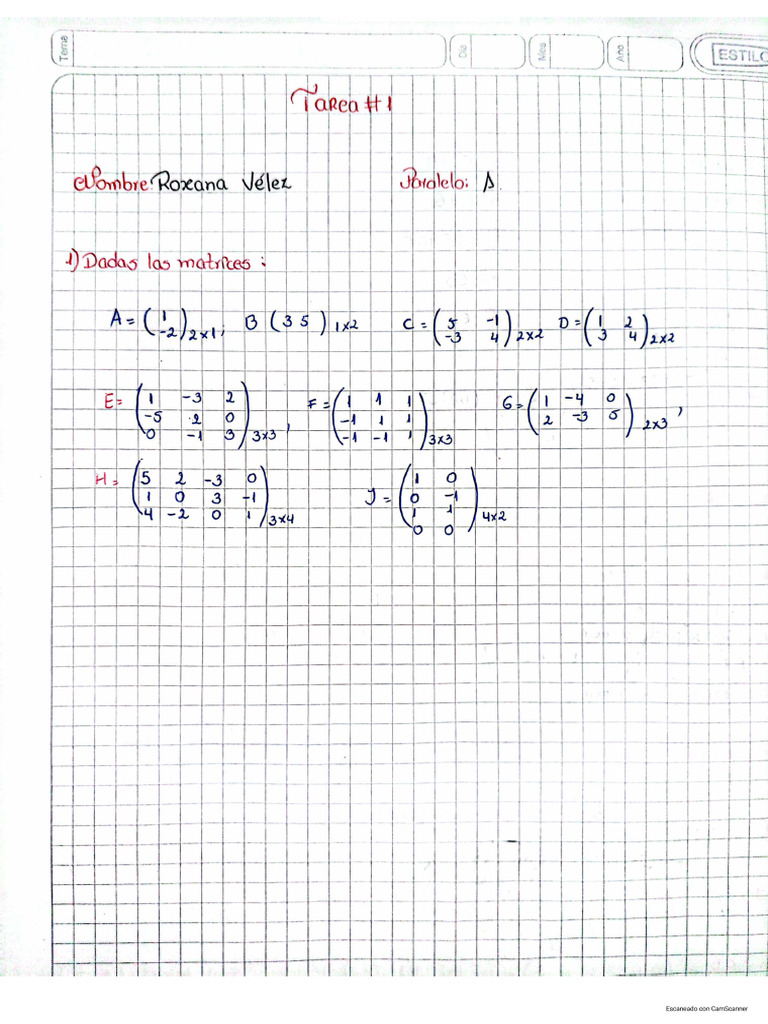 Tema Dia Mes Año ESTILO
Tarea #1
Nombre: Roxana Vélez Paralelo: A.
1) Dadas las matrices:
A = ( 1 ; -2 ) 2x1, B ( 3 5 ) 1x2 C = ( 5 -1 ; -3 4 ) 2x2 D = ( 1 2 ; 3 4 ) 2x2
E = ( 1 -3 2 ; -5 2 0 ; 0 -1 3 ) 3x3, F = ( 1 1 1 ; -1 1 1 ; -1 -1 1 ) 3x3 G = ( 1 -4 0 ; 2 -3 5 ) 2x3,
H = ( 5 2 -3 0 ; 1 0 3 -1 ; 4 -2 0 1 ) 3x4 J = ( 1 0 ; 0 -1 ; 1 1 ; 0 0 ) 4x2
Escaneado con CamScanner